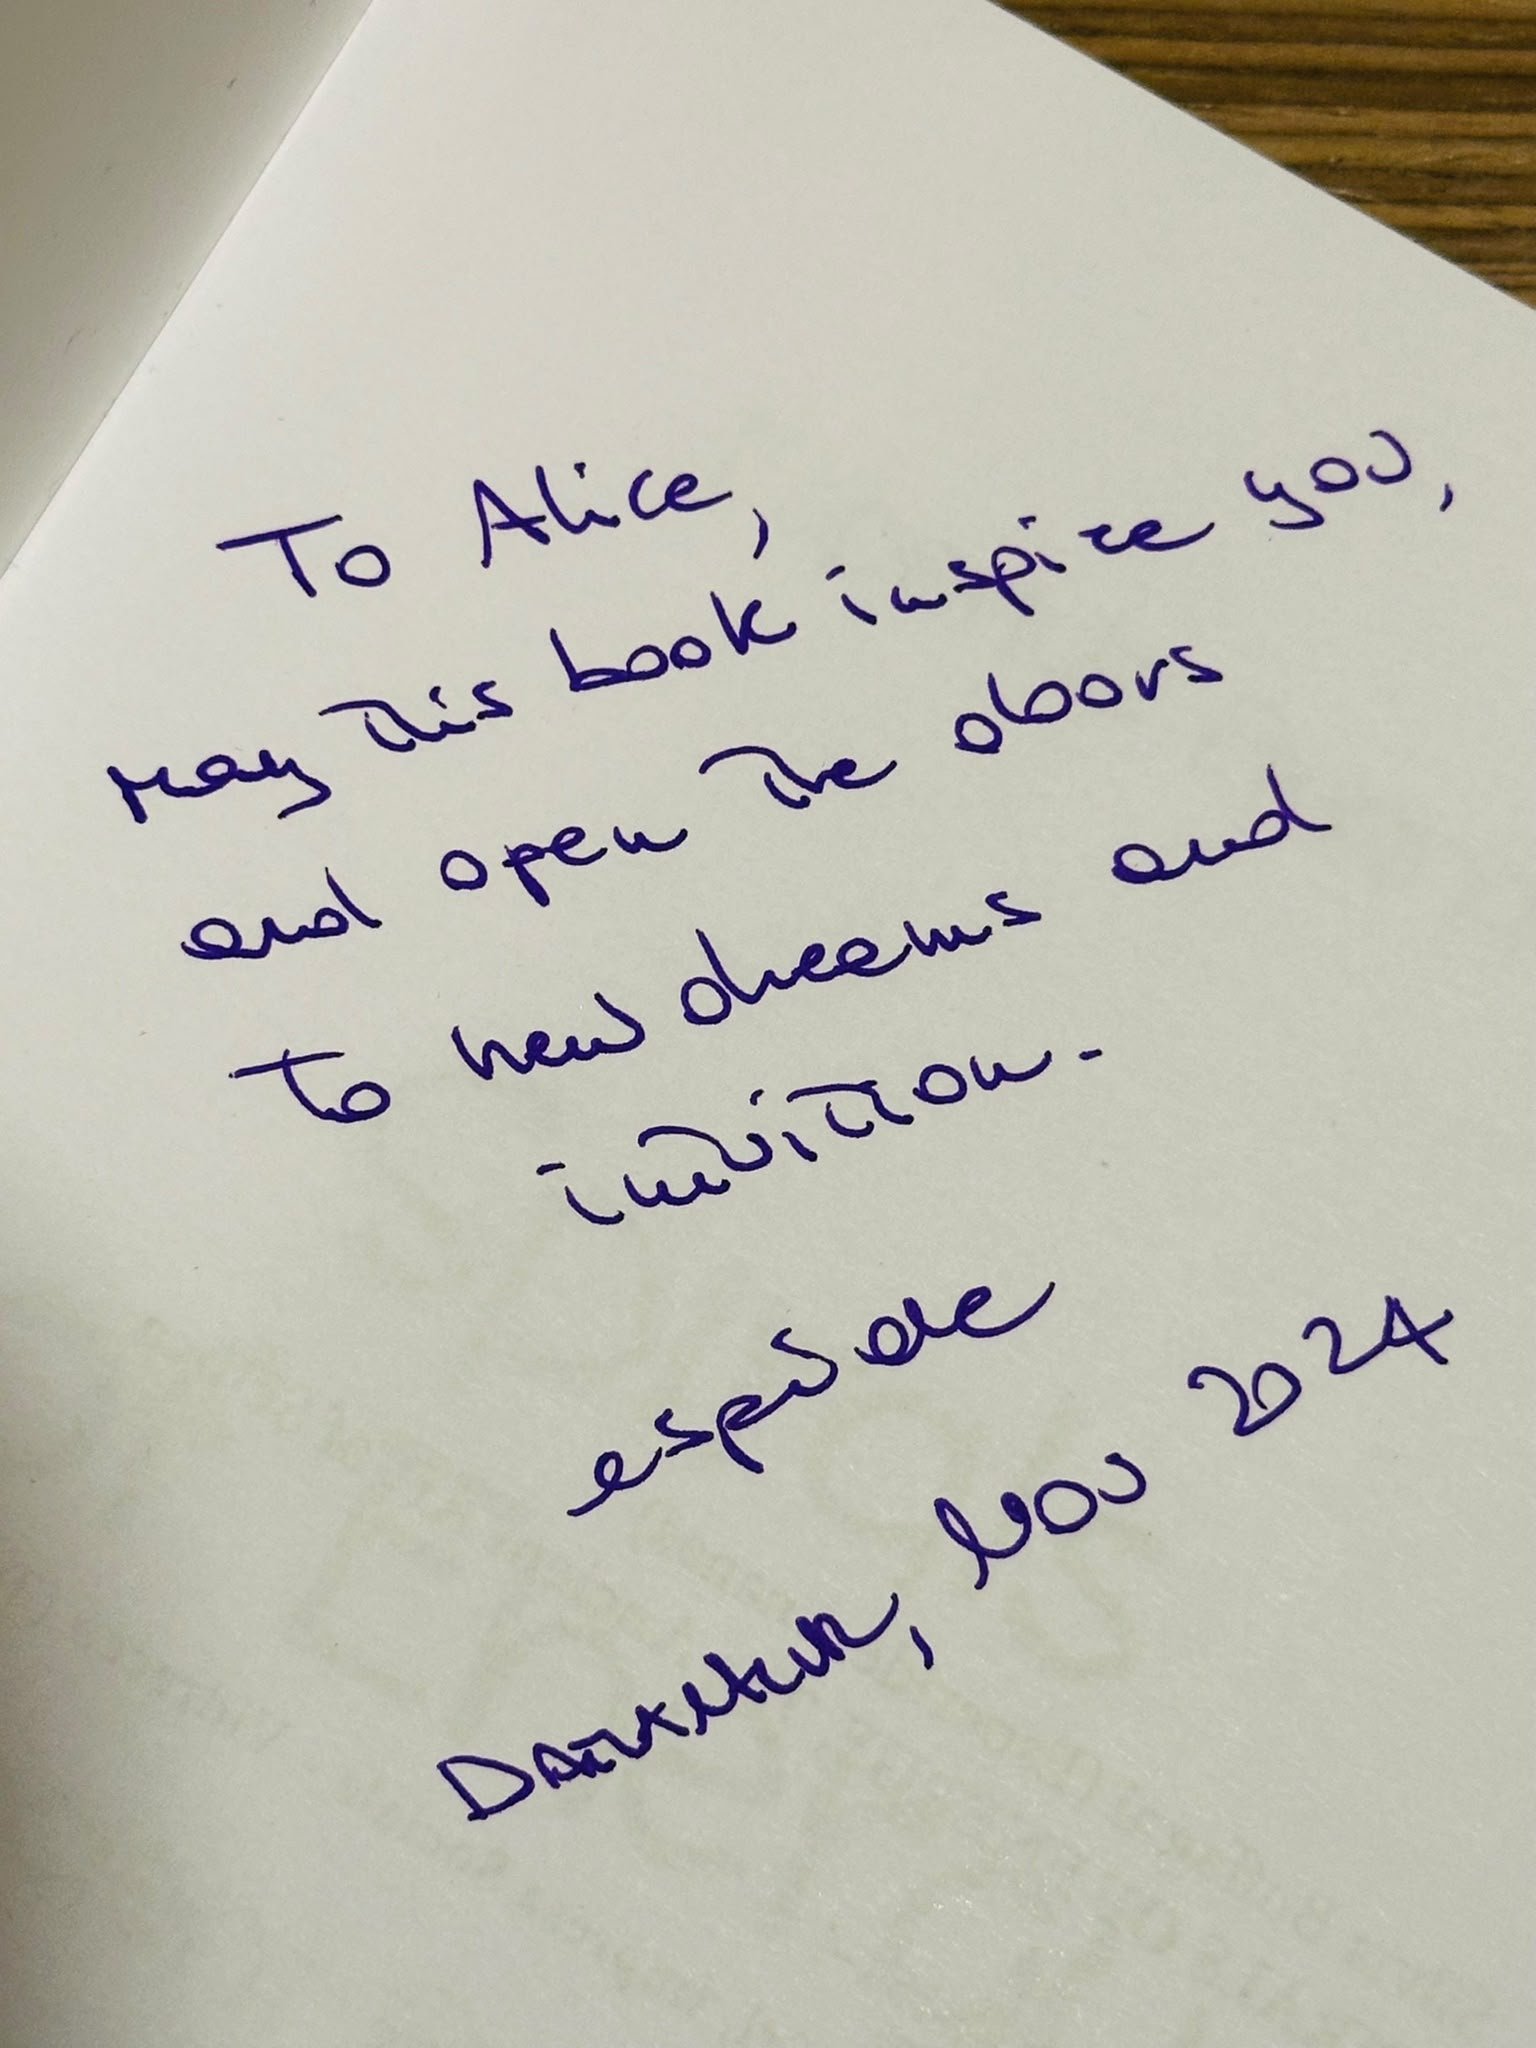 To Alice,
may this book inspire you,
and open the doors
to new dreams and
intuition.
Nov 2024